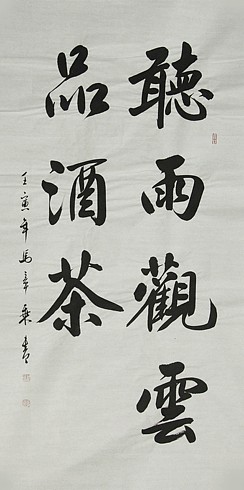 聽雨觀雲
品酒茶
壬寅年馬章乘書